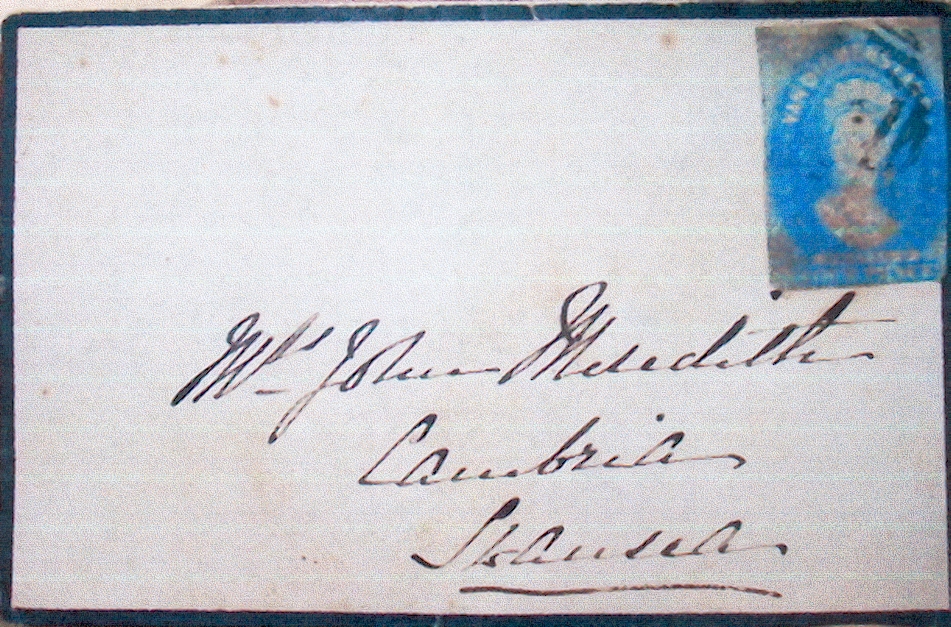 VAN DIEMENS LAND
Mrs John Meredith
Cambria
Swansea